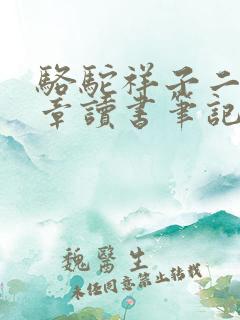 駱駝祥子二
章讀書筆記
魏醫生
未經同意禁止轉載